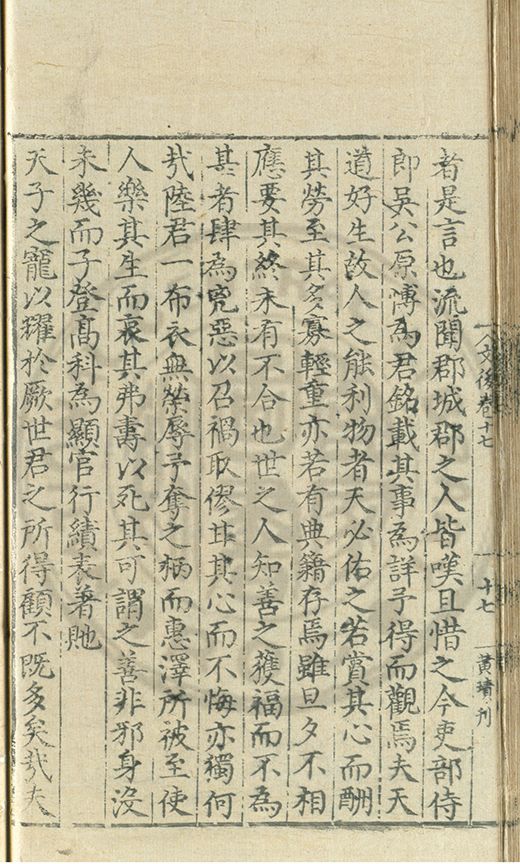 人文後卷十七
十七
黃琦刊
者是言也流聞郡城郡之人皆嘆且惜之今吏部侍
郎吳公原博為君銘載其事為詳予得而觀焉夫天
道好生故人之能利物者天必佑之若賞其心而酬
其勞至其多寡輕重亦若有典籍存焉雖旦夕不相
應要其終未有不合也世之人知善之獲福而不為
其者肆為兇惡以召禍取僇甘其心而不悔亦獨何
㢤陸君一布衣無榮辱予奪之柄而惠澤所被至使
人樂其生而哀其弗壽以死其可謂之善非邪身沒
未幾而子登高科為顯官行績表著貤
天子之寵以耀於厥世君之所得顧不既多矣㢤夫